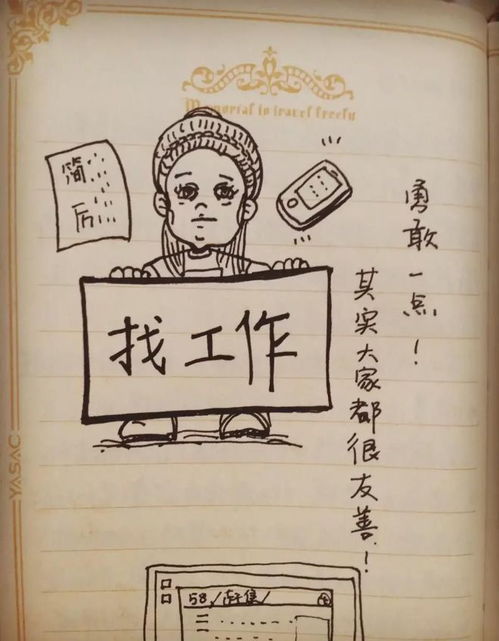 Memorial to travel freely
简
历
勇敢一点！
其实大家都很友善！
找工作
YASAC
58/赶集/